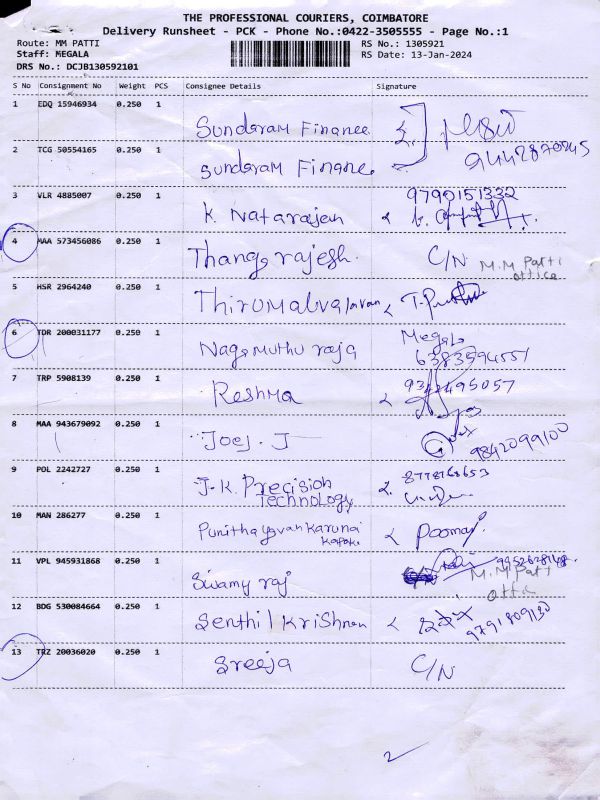 THE PROFESSIONAL COURIERS, COIMBATORE
Delivery Runsheet - PCK - Phone No.:0422-3505555 - Page No.:1
Route: MM PATTI
Staff: MEGALA
DRS No.: DCJB130592101
RS No.: 1305921
RS Date: 13-Jan-2024
S No Consignment No Weight PCS Consignee Details Signature
1 EDQ 15946934 0.250 1 Sundaram Finance
9442870845
2 TCG 50554165 0.250 1 Sundaram Finance
3 VLR 4885007 0.250 1 K. Natarajan 9790151332
4 MAA 573456086 0.250 1 Thanga rajesh. C/N M.M Patti office
5 HSR 2964240 0.250 1
6 TDR 200031177 0.250 1 Naga muthu raja Megala
6383594551
7 TRP 5908139 0.250 1 Reshma
8 MAA 943679092 0.250 1 Joej. J 9842099100
9 POL 2242727 0.250 1 J.K. Precision Technology
10 MAN 286277 0.250 1
11 VPL 945931868 0.250 1 Swamy raj M.M Patti office
12 BDG 530084664 0.250 1 Senthil Krishnan 9791809130
13 TRZ 20036020 0.250 1 Sreeja C/N
2